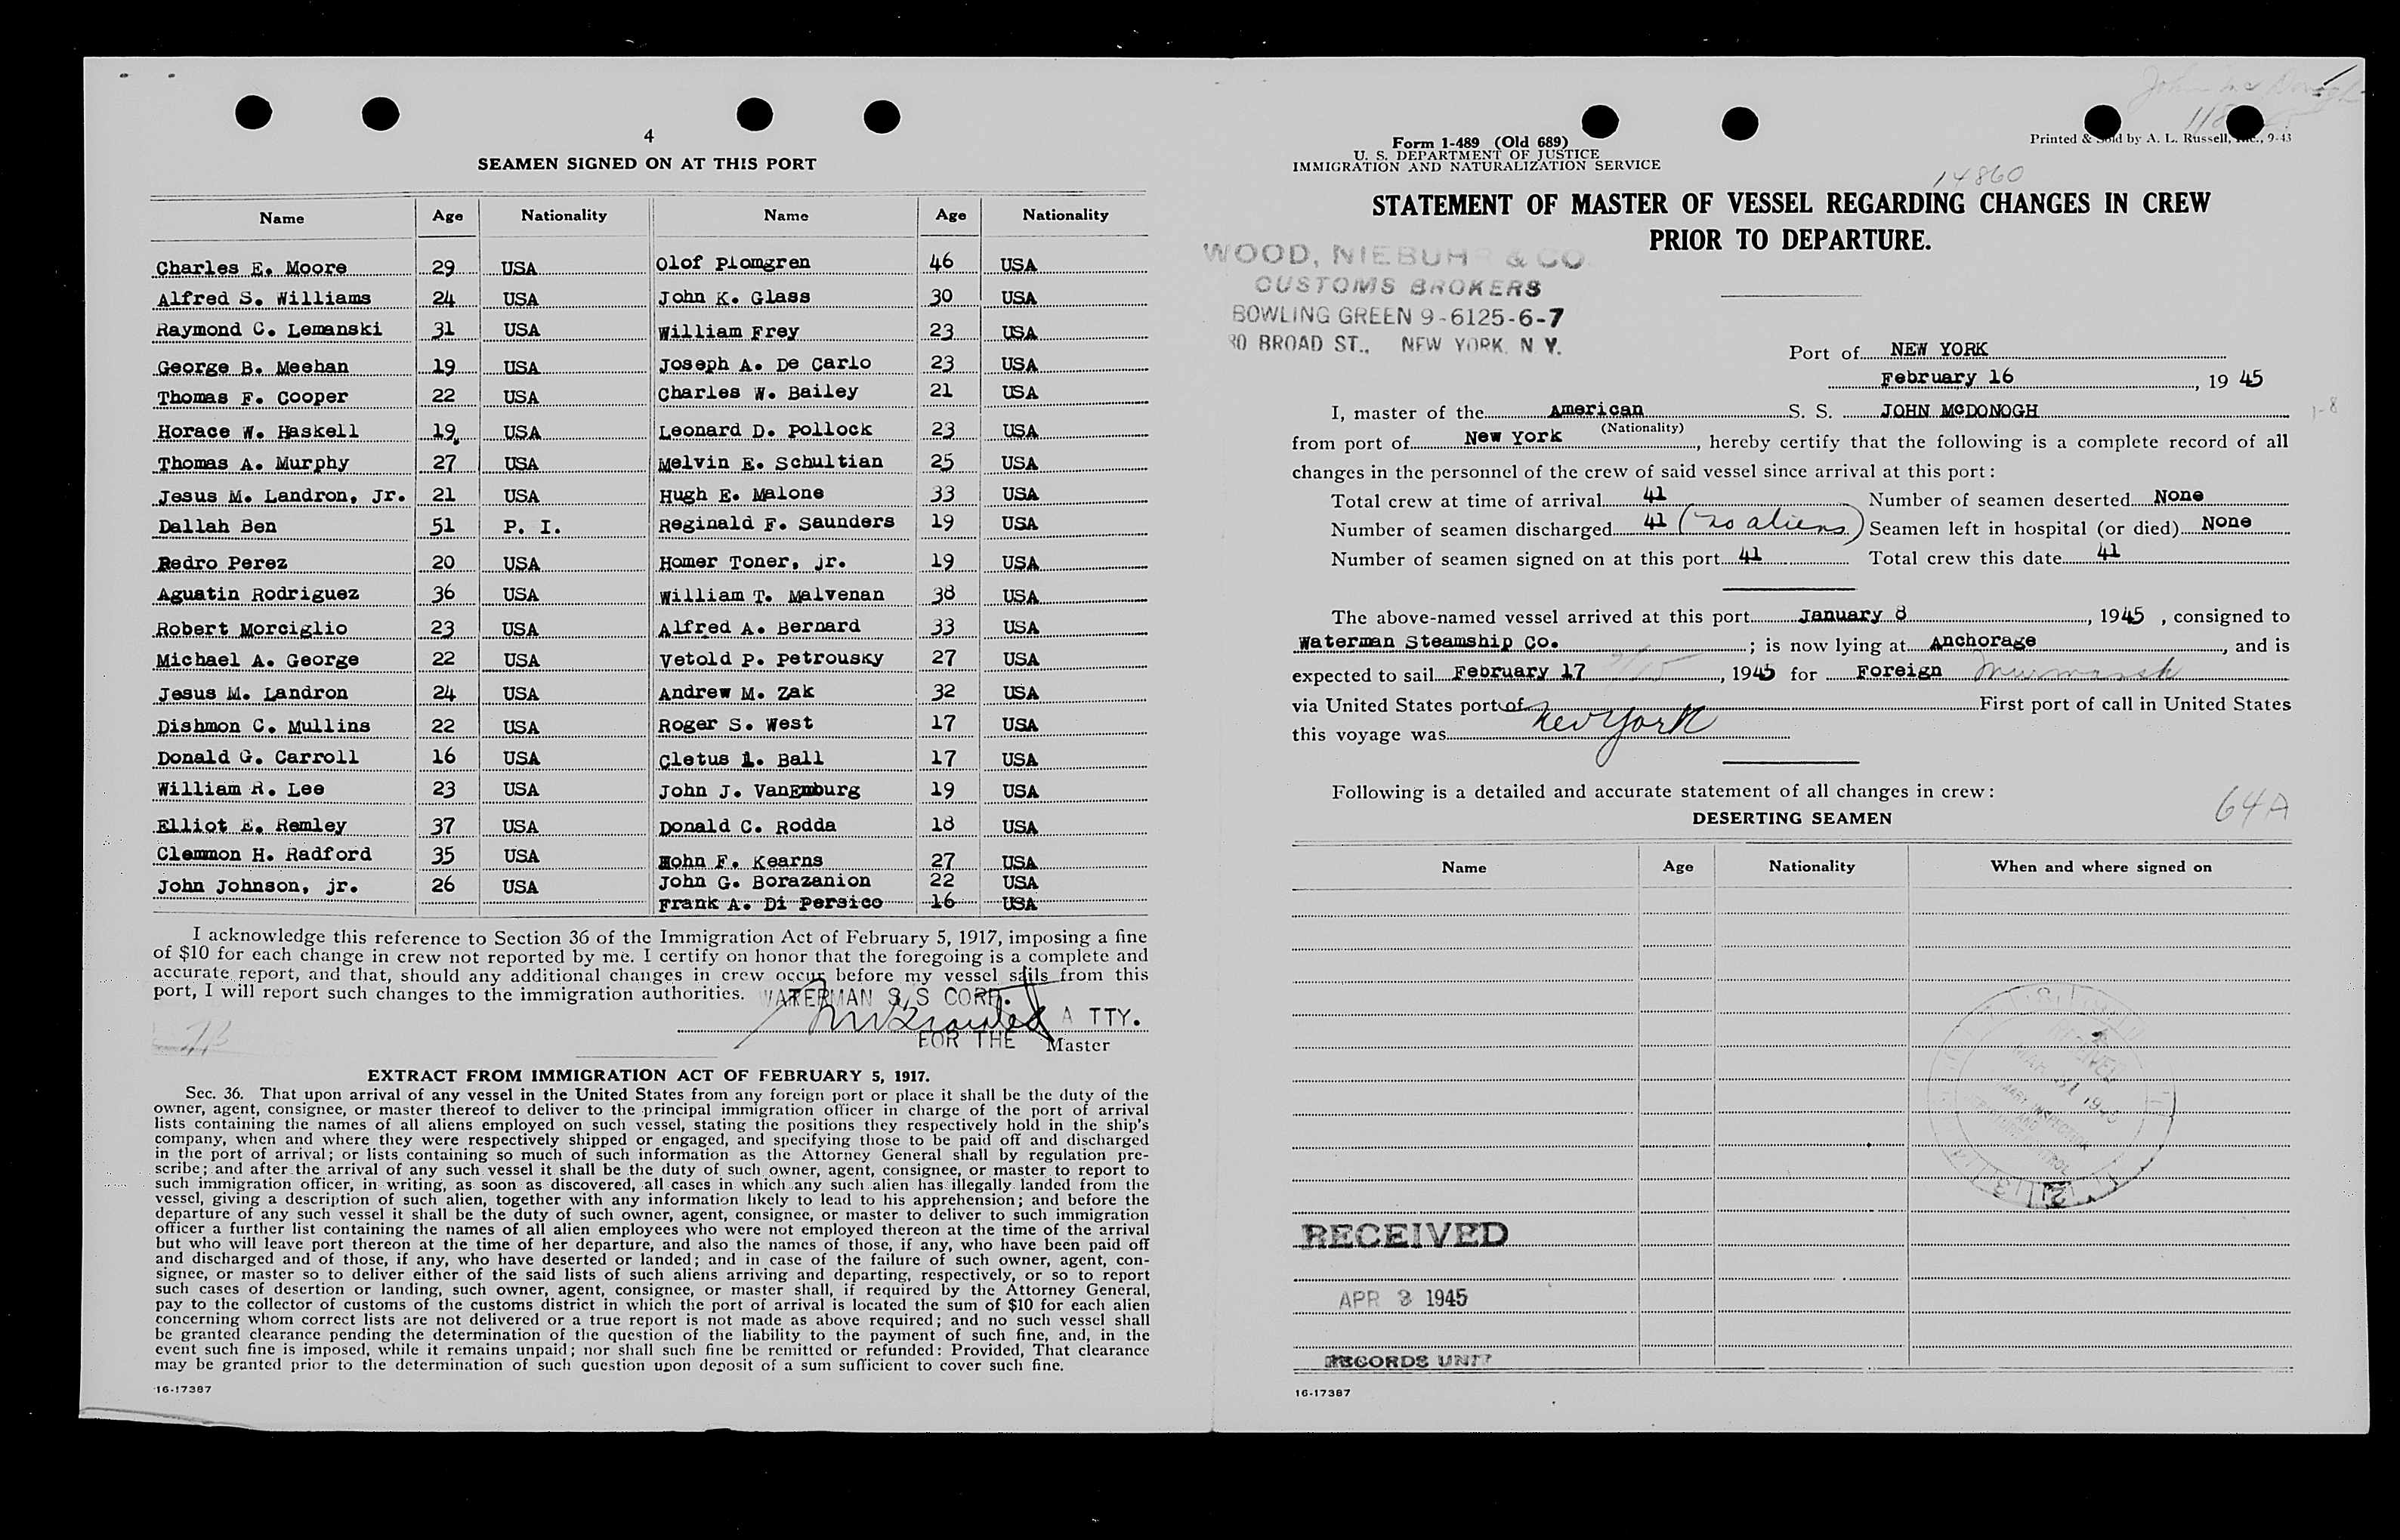 4
SEAMEN SIGNED ON AT THIS PORT
Name Age Nationality Name Age Nationality
Charles E. Moore 29 USA Olof Plomgren 46 USA
Alfred S. Williams 24 USA John K. Glass 30 USA
Raymond C. Lemanski 31 USA William Frey 23 USA
George B. Meehan 19 USA Joseph A. De Carlo 23 USA
Thomas F. Cooper 22 USA Charles W. Bailey 21 USA
Horace W. Haskell 19 USA Leonard D. Pollock 23 USA
Thomas A. Murphy 27 USA Melvin E. Schultian 25 USA
Jesus M. Landron, Jr. 21 USA Hugh E. Malone 33 USA
Dallah Ben 51 P. I. Reginald F. Saunders 19 USA
Pedro Perez 20 USA Homer Toner, jr. 19 USA
Aguatin Rodriguez 36 USA William T. Malvenan 38 USA
Robert Morciglio 23 USA Alfred A. Bernard 33 USA
Michael A. George 22 USA Vetold P. Petrousky 27 USA
Jesus M. Landron 24 USA Andrew M. Zak 32 USA
Dishmon C. Mullins 22 USA Roger S. West 17 USA
Donald G. Carroll 16 USA Cletus L. Ball 17 USA
William R. Lee 23 USA John J. VanEmburg 19 USA
Elliot E. Remley 37 USA Donald C. Rodda 18 USA
Clemmon H. Radford 35 USA John F. Kearns 27 USA
John Johnson, jr. 26 USA John G. Borazanion 22 USA
Frank A. Di Persico 16 USA
I acknowledge this reference to Section 36 of the Immigration Act of February 5, 1917, imposing a fine
of $10 for each change in crew not reported by me. I certify on honor that the foregoing is a complete and
accurate report, and that, should any additional changes in crew occur before my vessel sails from this
port, I will report such changes to the immigration authorities. WATERMAN S/S CORP.
A TTY.
FOR THE Master
EXTRACT FROM IMMIGRATION ACT OF FEBRUARY 5, 1917.
Sec. 36. That upon arrival of any vessel in the United States from any foreign port or place it shall be the duty of the
owner, agent, consignee, or master thereof to deliver to the principal immigration officer in charge of the port of arrival
lists containing the names of all aliens employed on such vessel, stating the positions they respectively hold in the ship's
company, when and where they were respectively shipped or engaged, and specifying those to be paid off and discharged
in the port of arrival; or lists containing so much of such information as the Attorney General shall by regulation pre-
scribe; and after the arrival of any such vessel it shall be the duty of such owner, agent, consignee, or master to report to
such immigration officer, in writing, as soon as discovered, all cases in which any such alien has illegally landed from the
vessel, giving a description of such alien, together with any information likely to lead to his apprehension; and before the
departure of any such vessel it shall be the duty of such owner, agent, consignee, or master to deliver to such immigration
officer a further list containing the names of all alien employees who were not employed thereon at the time of the arrival
but who will leave port thereon at the time of her departure, and also the names of those, if any, who have been paid off
and discharged and of those, if any, who have deserted or landed; and in case of the failure of such owner, agent, con-
signee, or master so to deliver either of the said lists of such aliens arriving and departing, respectively, or so to report
such cases of desertion or landing, such owner, agent, consignee, or master shall, if required by the Attorney General,
pay to the collector of customs of the customs district in which the port of arrival is located the sum of $10 for each alien
concerning whom correct lists are not delivered or a true report is not made as above required; and no such vessel shall
be granted clearance pending the determination of the question of the liability to the payment of such fine, and, in the
event such fine is imposed, while it remains unpaid; nor shall such fine be remitted or refunded: Provided, That clearance
may be granted prior to the determination of such question upon deposit of a sum sufficient to cover such fine.
16-17387
John McDonogh
Form 1-489 (Old 689)
U. S. DEPARTMENT OF JUSTICE
IMMIGRATION AND NATURALIZATION SERVICE
Printed & Sold by A. L. Russell, Inc., 9-43
14860
STATEMENT OF MASTER OF VESSEL REGARDING CHANGES IN CREW
PRIOR TO DEPARTURE.
WOOD, NIEBUHR & CO.
CUSTOMS BROKERS
BOWLING GREEN 9-6125-6-7
80 BROAD ST., NEW YORK, N. Y.
Port of NEW YORK
February 16, 19 45
I, master of the American S. S. JOHN McDONOGH
1-8
(Nationality)
from port of New York, hereby certify that the following is a complete record of all
changes in the personnel of the crew of said vessel since arrival at this port:
Total crew at time of arrival 41 Number of seamen deserted None
Number of seamen discharged 41 (no aliens) Seamen left in hospital (or died) None
Number of seamen signed on at this port 41 Total crew this date 41
The above-named vessel arrived at this port January 8, 1945, consigned to
Waterman Steamship Co.; is now lying at Anchorage, and is
expected to sail February 17, 1945 for Foreign Murmansk
via United States port of First port of call in United States
this voyage was New York
Following is a detailed and accurate statement of all changes in crew:
64A
DESERTING SEAMEN
Name Age Nationality When and where signed on
RECEIVED
APR 3 1945
RECORDS UNIT
16-17387